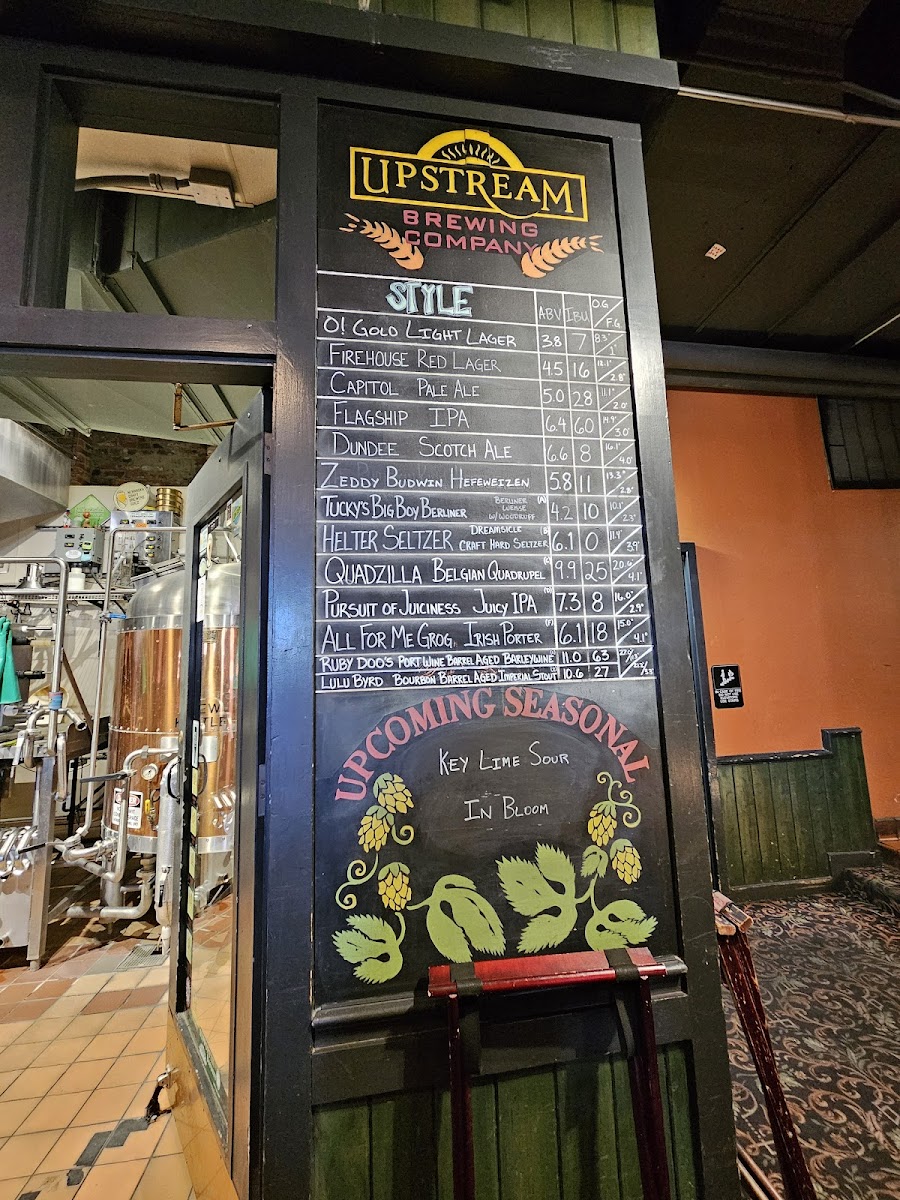 UPSTREAM
BREWING
COMPANY
STYLE ABV IBU O.G / F.G
O! GOLD LIGHT LAGER 3.8 7 8.3
FIREHOUSE RED LAGER 4.5 16 12.1° / 2.8°
CAPITOL PALE ALE 5.0 28 11.1° / 2.0°
FLAGSHIP IPA 6.4 60 14.9° / 3.0°
DUNDEE SCOTCH ALE 6.6 8 16.1° / 4.0°
ZEDDY BUDWIN HEFEWEIZEN 5.8 11 13.3° / 2.8°
TUCKY'S BIG BOY BERLINER BERLINER WEISSE W/ WOODRUFF (A) 4.2 10 10.1° / 2.3°
HELTER SELTZER DREAMSICLE CRAFT HARD SELTZER 6.1 0 11.4° / 3.9°
QUADZILLA BELGIAN QUADRUPEL 9.9 25 20.6° / 4.1°
PURSUIT OF JUICINESS JUICY IPA (D) 7.3 8 16.0° / 2.9°
ALL FOR ME GROG, IRISH PORTER (F) 6.1 18 15.0° / 4.1°
RUBY DOO'S PORT WINE BARREL AGED BARLEYWINE 11.0 63
LULU BYRD BOURBON BARREL AGED IMPERIAL STOUT 10.6 27
UPCOMING SEASONAL
KEY LIME SOUR
IN BLOOM